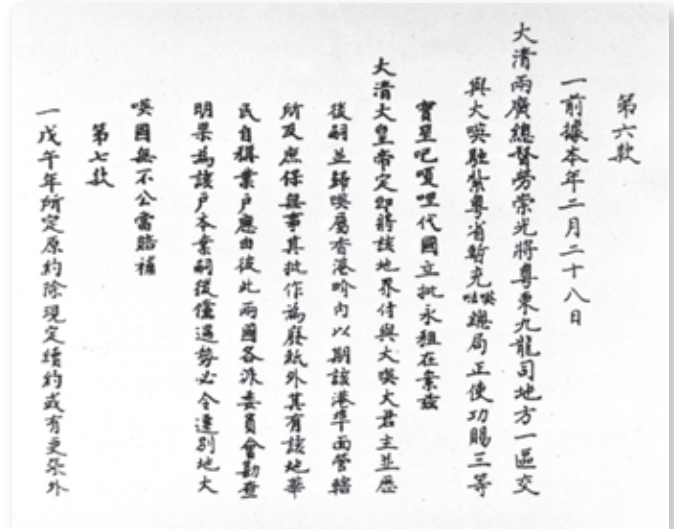 第六款
一前據本年二月二十八日
大清兩廣總督勞崇光將粵東九龍司地方一區交
與大𠸄駐紮粵省暫充𠸄總局正使功賜三等
寶星吧嗄哩代國立批永租在案茲
大清大皇帝定即將該地界付與大𠸄大君主並歷
後嗣並歸𠸄屬香港畍內以期該港埠面管轄
所及庶保無事其批作為廢紙外其有該地華
民自稱業戶應由彼此兩國各派委員會勘查
明果為該戶本業嗣後倘遇勢必令遷別地大
𠸄國無不公當賠補
第七款
一戊午年所定原約除現定續約或有更張外